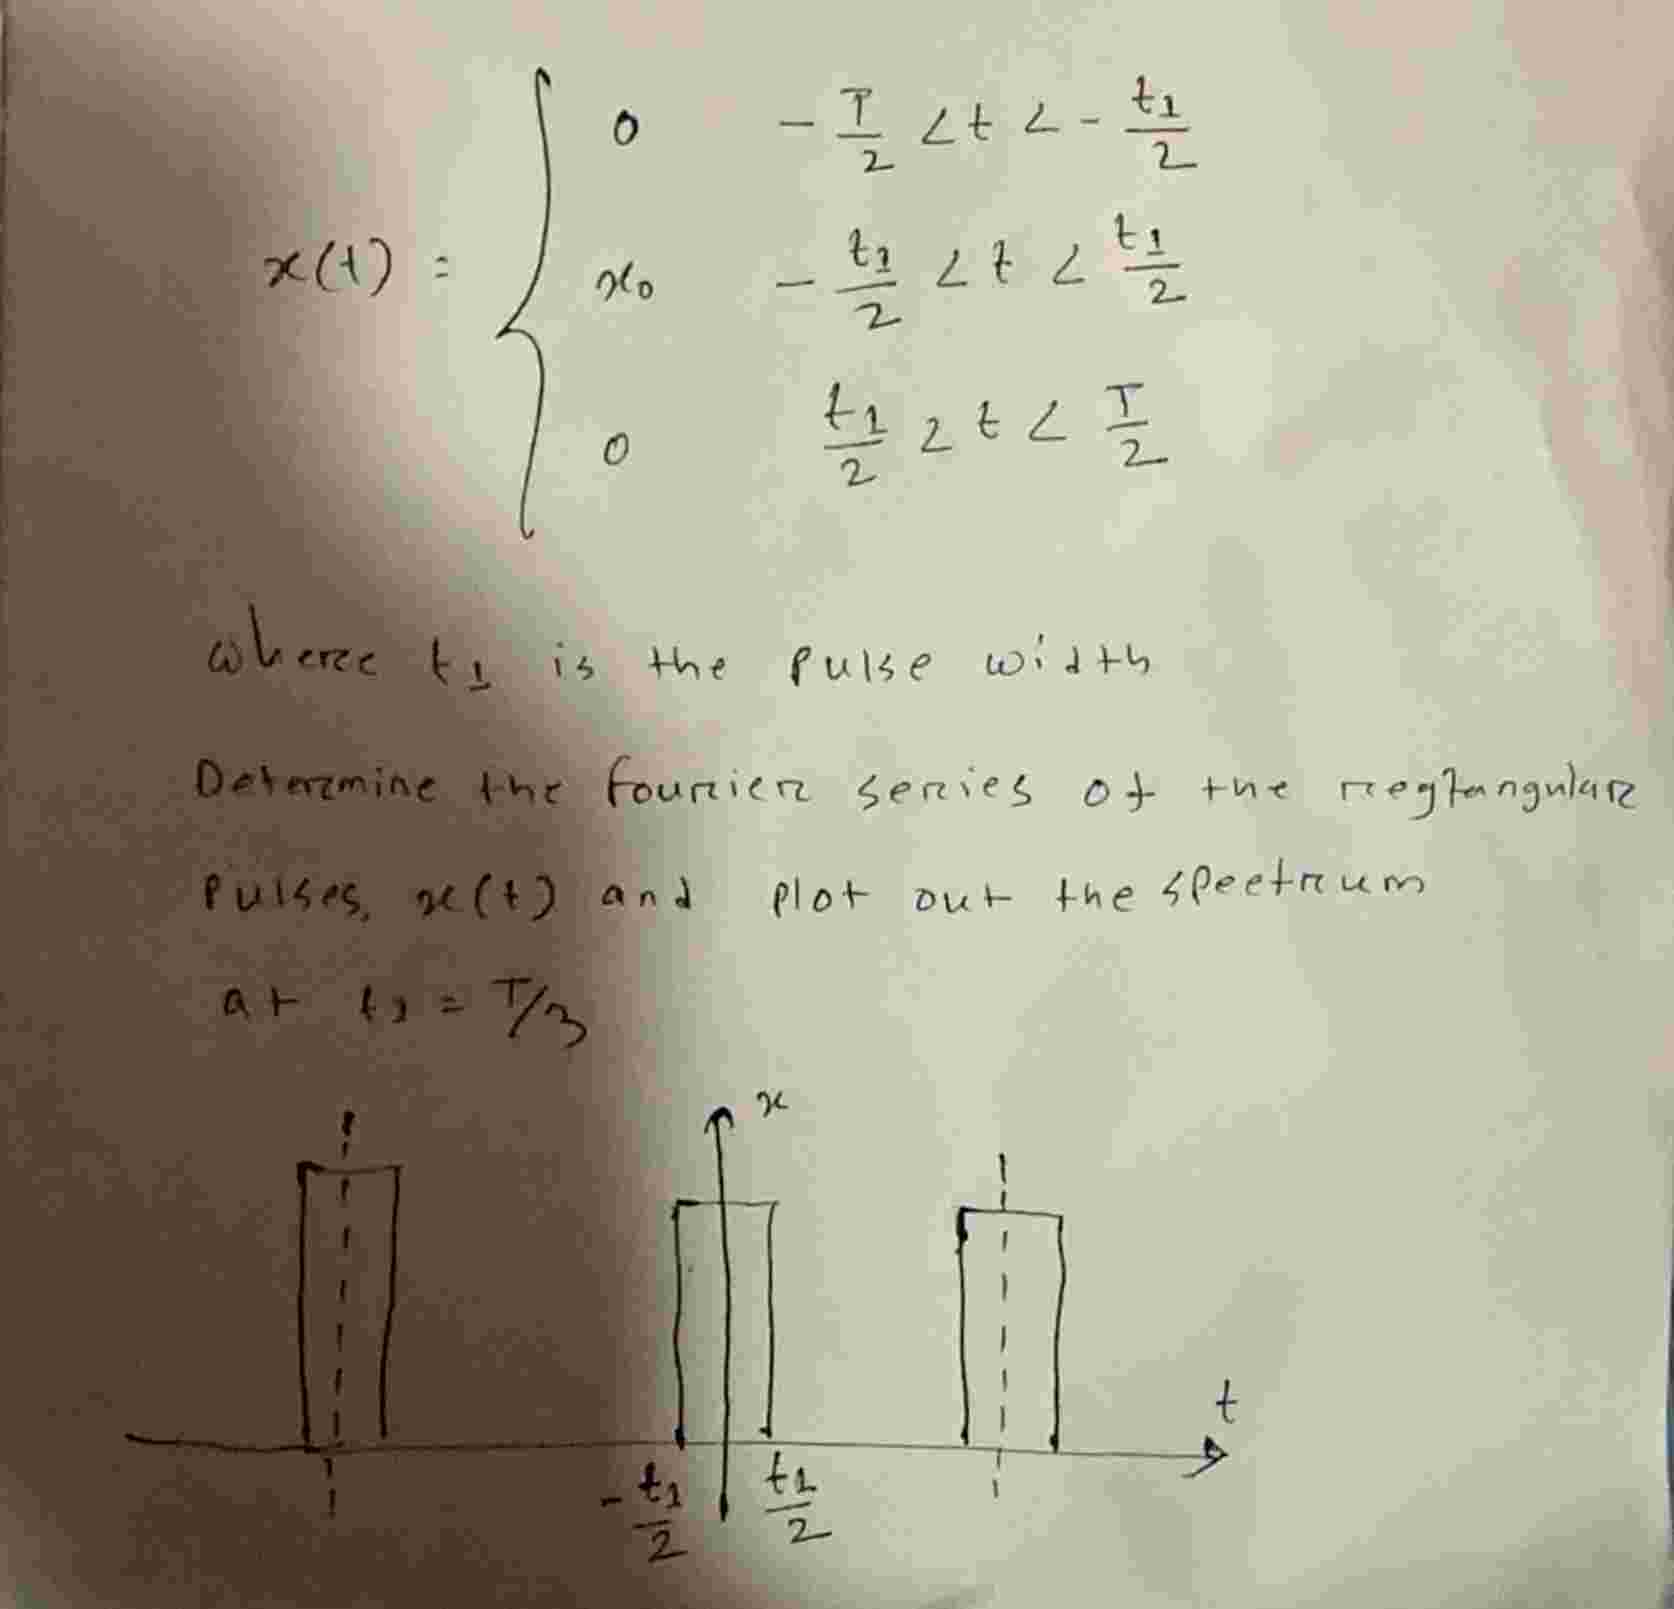 x(t) = { 0   -T/2 < t < -t1/2
x0   -t1/2 < t < t1/2
0   t1/2 2 t < T/2
where t1 is the pulse width
Determine the fourier series of the regtangular
pulses, x(t) and plot out the spectrum
at t1 = T/3
x
t
-t1/2   t1/2